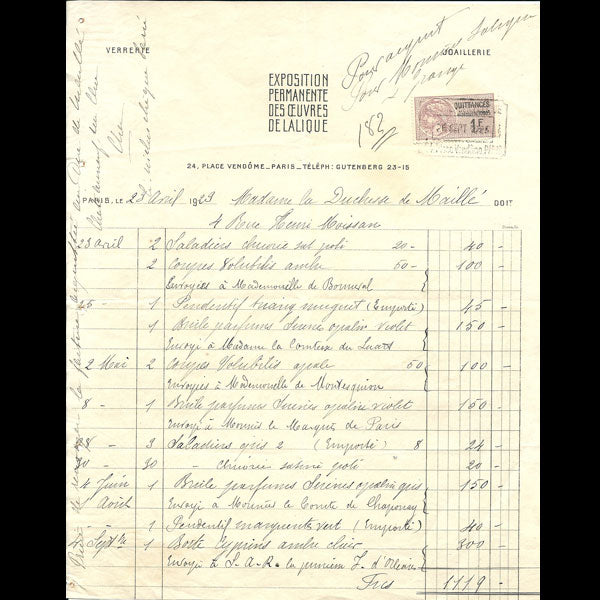 VERRERIE
JOAILLERIE
EXPOSITION
PERMANENTE
DES ŒUVRES
DE LALIQUE
Pour acquit
Pour Monsieur Lalique
182
QUITTANCES
1F
SEPT
24, PLACE VENDÔME_PARIS_TÉLÉPH: GUTENBERG 23-15
PARIS, LE 23 Avril 1923 Madame la Duchesse de Maillé DOIT
4 Rue Henri Moissan
23 avril 2 Saladiers chicorée sat poli 20- 40 -
2 Coupes Volubilis ambre 50- 100 -
Envoyées à Mademoiselle de Bonneval
25 - 1 Pendentif muguet (Emporté) 45 -
1 Brûle parfums Sirènes opalin violet 150 -
Envoyé à Madame la Comtesse du Luart
2 Mai 2 Coupes Volubilis opale 50 100 -
Envoyées à Mademoiselle de Montesquiou
8 - 1 Brûle parfums Sirènes opaline violet 150 -
Envoyé à Monsieur le Marquis de Paris
- 3 Saladiers gris 2 (Emporté) 8 24 -
30 - chicorée satiné poli " 20 -
4 Juin 1 Brûle parfums Sirènes opalin gris 150 -
Août Envoyé à Monsieur le Comte de Chaponay
1 Pendentif marguerite vert (Emporté) 40 -
Sept 1 Boîte Cyprins ambre clair 300 -
Envoyé à S.A.R. la princesse d'Orléans
Frcs 1119 -